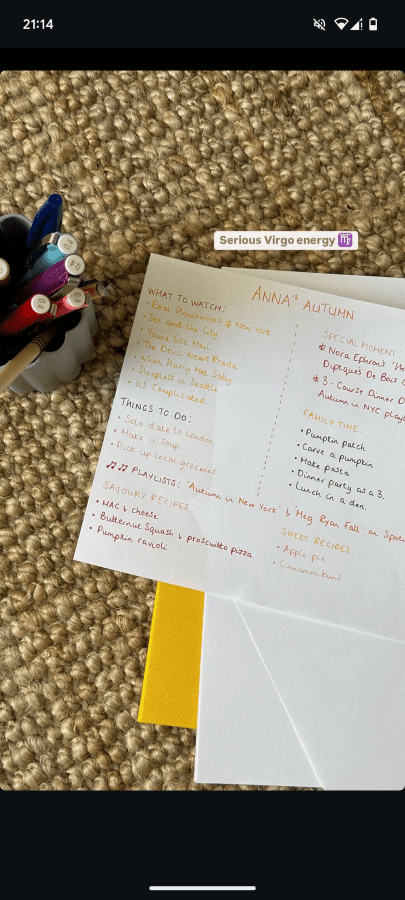 21:14
Serious Virgo energy ♍
ANNA'S AUTUMN
WHAT TO WATCH:
• Real Housewives of New York
• Sex and the City
• You've Got Mail
• The Devil Wears Prada
• When Harry Met Sally
• Sleepless in Seattle
• It's Complicated
THINGS TO DO:
• Solo date to London
• Make a soup
• Pick up local groceries
♫♫ PLAYLISTS: "Autumn in New York" & "Meg Ryan Fall" on Spot
SAVOURY RECIPES
• MAC & cheese
• Butternut Squash & prosciutto pizza
• Pumpkin ravioli
SPECIAL MOMENT:
Nora Ephron's
Diptyque's De Bois
3-Course Dinner D
Autumn in NYC playl
FAMILY TIME:
• Pumpkin patch
• Carve a pumpkin
• Make pasta
• Dinner party as a 3.
• Lunch in a den.
SWEET RECIPES:
• Apple pie
• Cinnamon buns